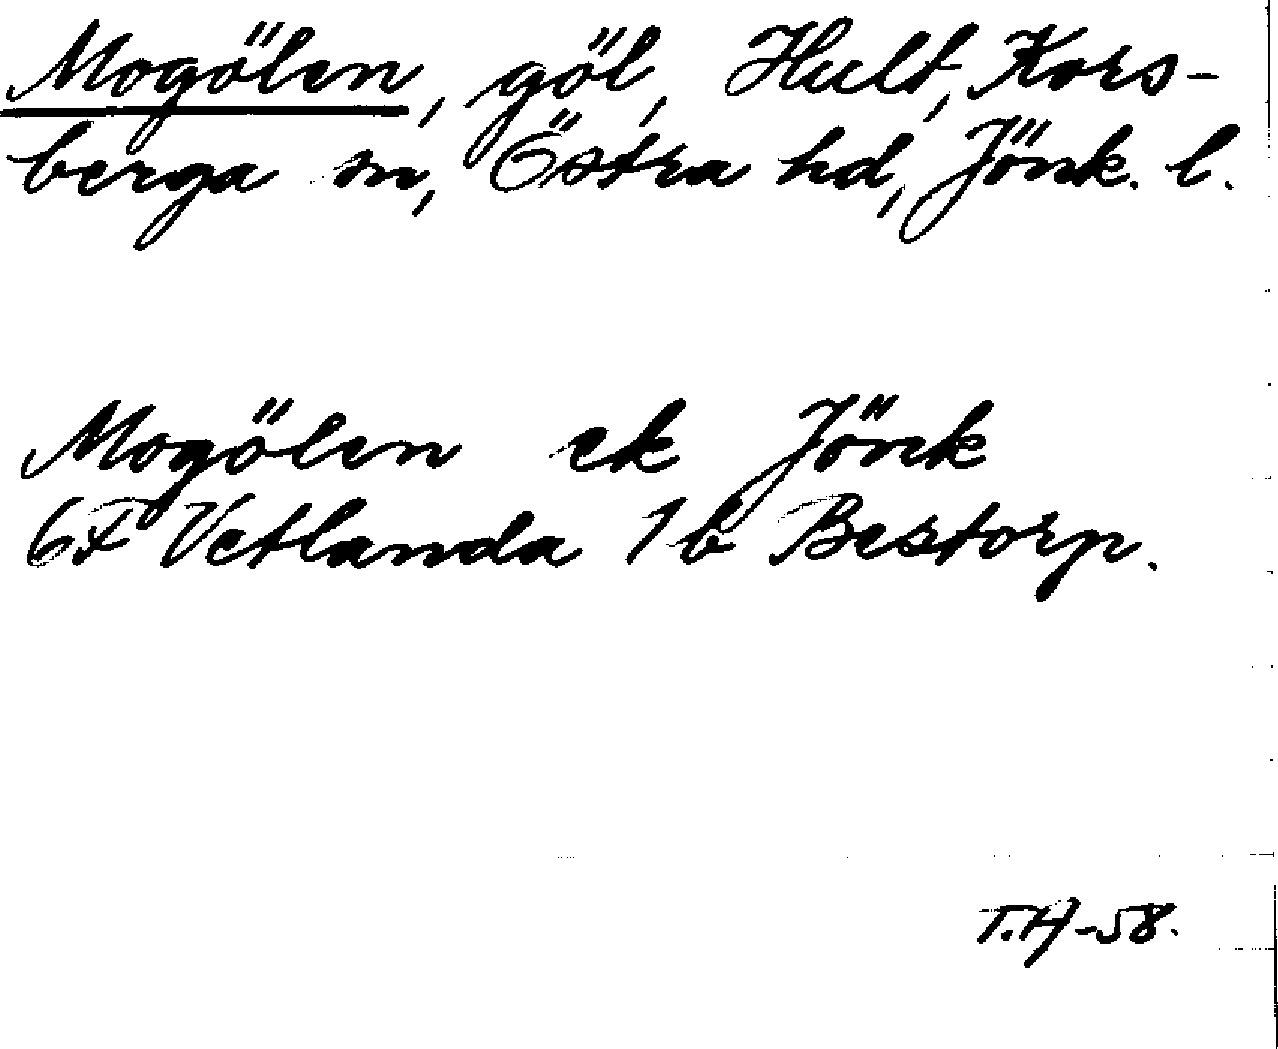 Mogölen, göl, Hult, Kors-
berga sn, Östra hd, Jönk. l.
Mogölen ek Jönk
6F Vetlanda 1b Bestorp.
T.H-58.